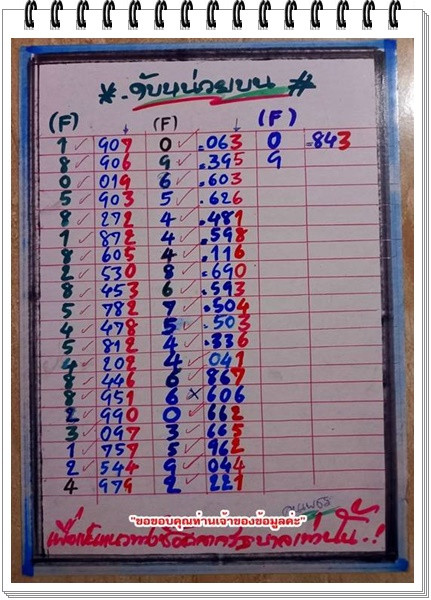 * .ดับหน่วยบน #
(F) (F) (F)
1 ✓ 907 0 ✓ .063 0 .843
8 ✓ 906 9 ✓ .395 9
0 ✓ 019 6 ✓ .603
5 ✓ 903 5 ✓ .626
8 ✓ 272 4 ✓ .481
1 ✓ 872 4 ✓ .598
8 ✓ 605 4 ✓ .116
2 ✓ 530 8 ✓ .690
8 ✓ 453 6 ✓ .593
5 ✓ 782 7 ✓ .504
4 ✓ 478 5 ✓ .503
5 ✓ 812 4 ✓ .336
4 ✓ 202 4 ✓ 041
8 ✓ 446 6 ✓ 867
8 ✓ 951 6 × 606
2 ✓ 990 0 ✓ 662
3 ✓ 097 3 ✓ 665
1 ✓ 757 5 ✓ 962
2 ✓ 544 9 ✓ 044
4 979 2 ✓ 221
"ขอขอบคุณท่านเจ้าของข้อมูลค่ะ"
เพื่อเป็นแนวทางซื้อสลากรัฐบาลเท่านั้น.!